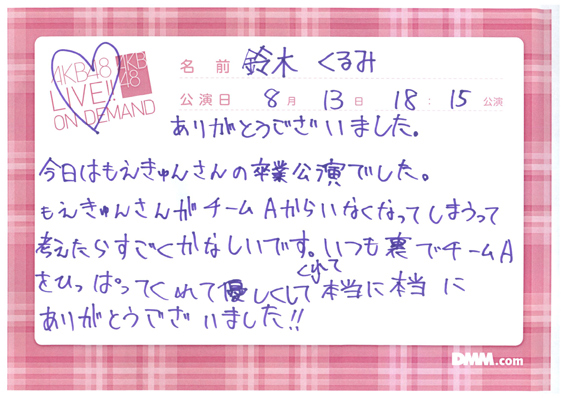 AKB48
LIVE!!
ON DEMAND
AKB
48
名前 鈴木 くるみ
公演日 8月 13日 18:15 公演
ありがとうございました。
今日はもえきゅんさんの卒業公演でした。
もえきゅんさんがチームAからいなくなってしまうって
考えたらすごくかなしいです。いつも裏でチームA
をひっぱってくれて優しくして
くれて
本当に本当に
ありがとうございました!!
DMM.com